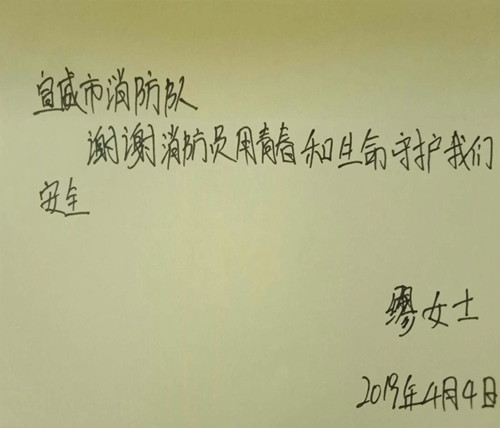 宣威市消防队
谢谢消防员用青春和生命守护我们
安全
缪女士
2019年4月4日